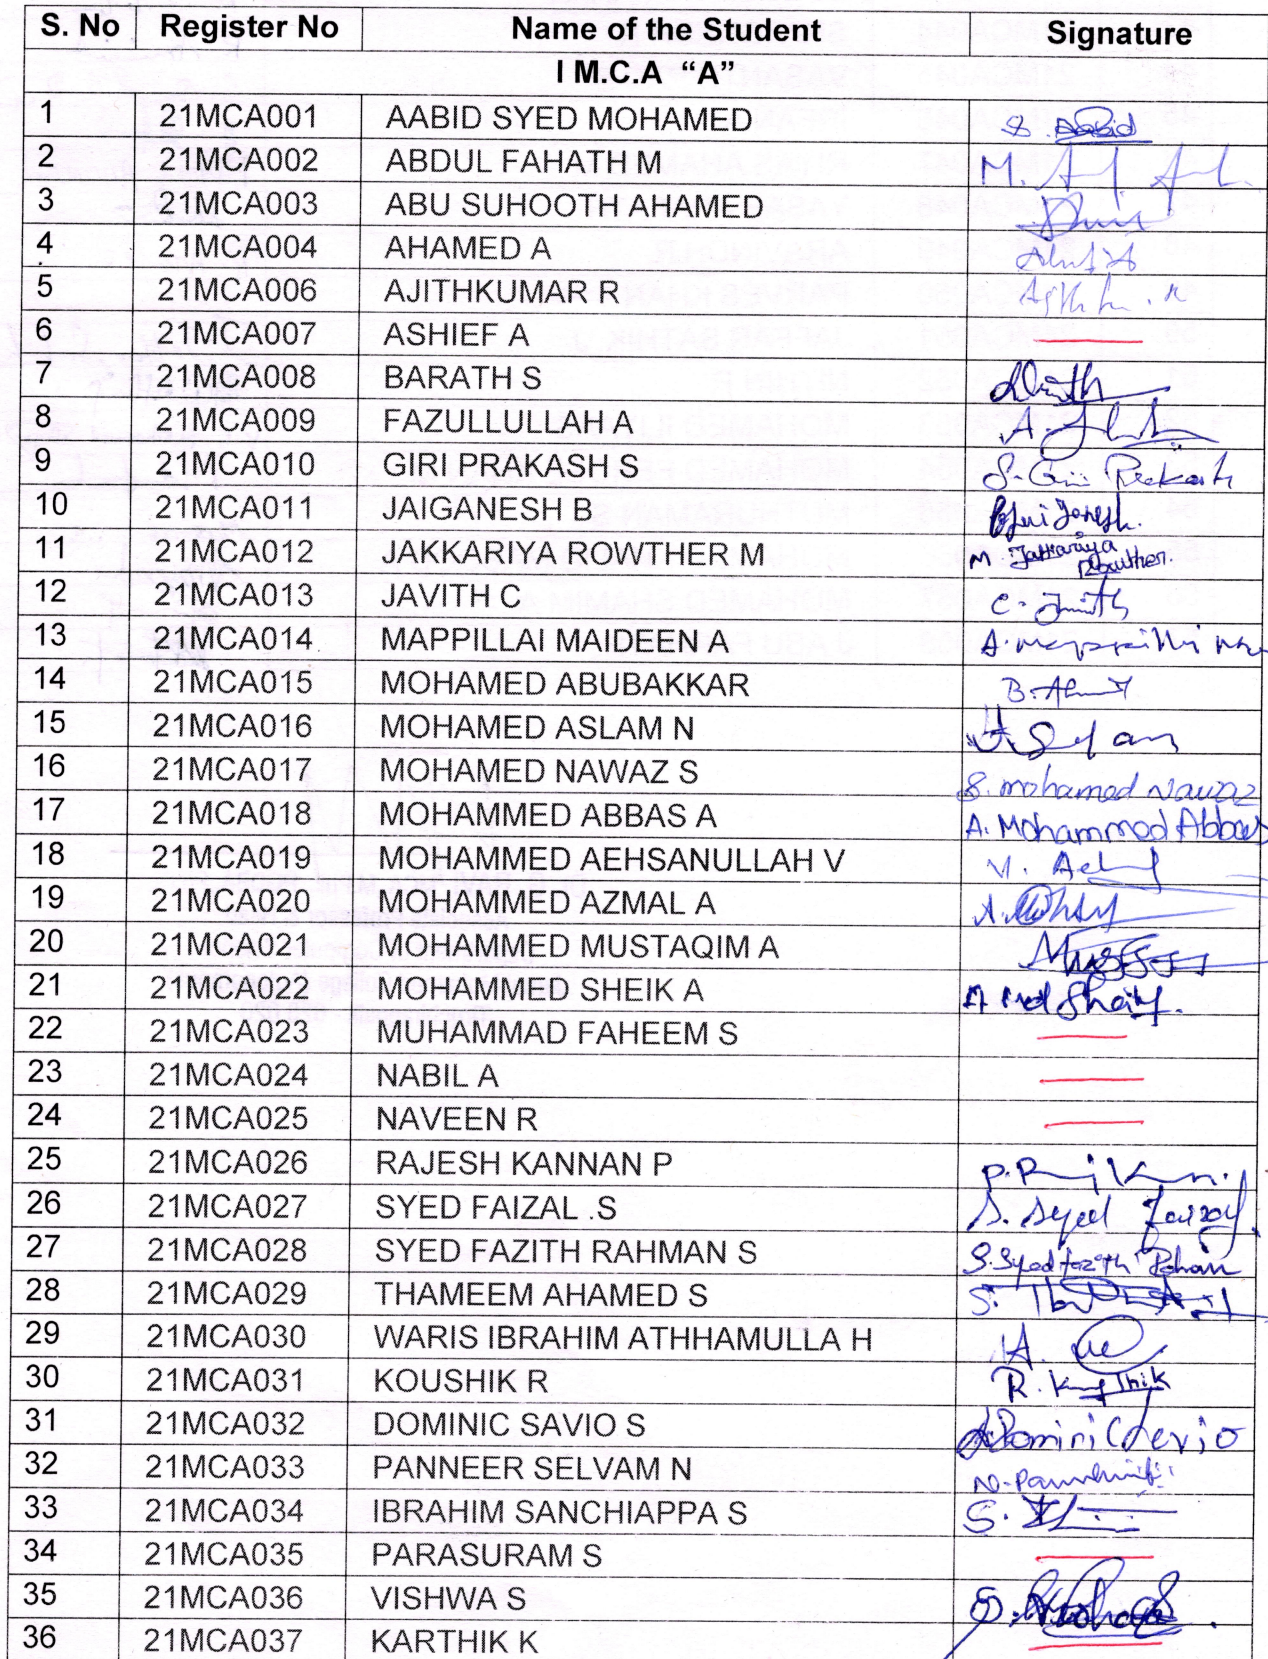 S. No Register No Name of the Student Signature
I M.C.A "A"
1 21MCA001 AABID SYED MOHAMED S. Aabid
2 21MCA002 ABDUL FAHATH M M.
3 21MCA003 ABU SUHOOTH AHAMED
4 21MCA004 AHAMED A
5 21MCA006 AJITHKUMAR R
6 21MCA007 ASHIEF A
7 21MCA008 BARATH S
8 21MCA009 FAZULLULLAH A A.
9 21MCA010 GIRI PRAKASH S S. Giri Prakash
10 21MCA011 JAIGANESH B
11 21MCA012 JAKKARIYA ROWTHER M M. Jakkariya Rowther.
12 21MCA013 JAVITH C C. Javith
13 21MCA014 MAPPILLAI MAIDEEN A A.
14 21MCA015 MOHAMED ABUBAKKAR B.
15 21MCA016 MOHAMED ASLAM N
16 21MCA017 MOHAMED NAWAZ S S. mohamed Nawaz
17 21MCA018 MOHAMMED ABBAS A A. Mohammed Abbas
18 21MCA019 MOHAMMED AEHSANULLAH V V.
19 21MCA020 MOHAMMED AZMAL A A.
20 21MCA021 MOHAMMED MUSTAQIM A
21 21MCA022 MOHAMMED SHEIK A A Md Sheik.
22 21MCA023 MUHAMMAD FAHEEM S
23 21MCA024 NABIL A
24 21MCA025 NAVEEN R
25 21MCA026 RAJESH KANNAN P P.
26 21MCA027 SYED FAIZAL .S S. Syed Faizal
27 21MCA028 SYED FAZITH RAHMAN S S. Syed fazith Rahman
28 21MCA029 THAMEEM AHAMED S S.
29 21MCA030 WARIS IBRAHIM ATHHAMULLA H
30 21MCA031 KOUSHIK R R.
31 21MCA032 DOMINIC SAVIO S Dominic Savio
32 21MCA033 PANNEER SELVAM N N.
33 21MCA034 IBRAHIM SANCHIAPPA S S.
34 21MCA035 PARASURAM S
35 21MCA036 VISHWA S S.
36 21MCA037 KARTHIK K